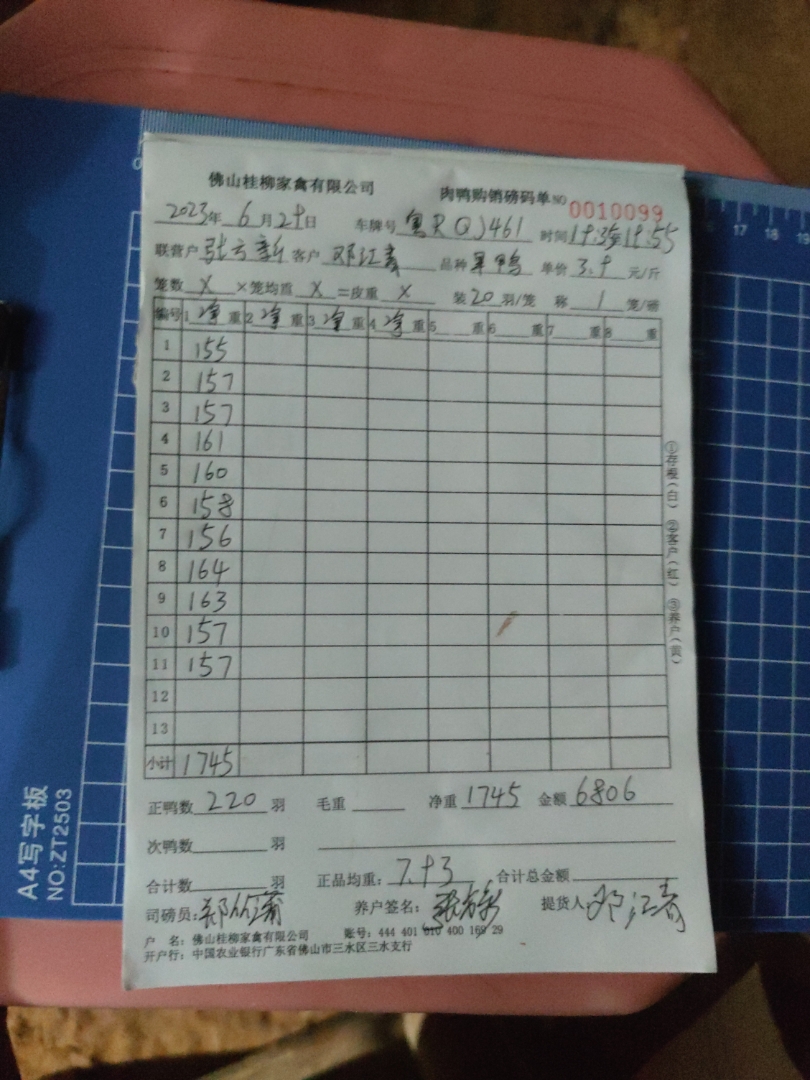 佛山桂柳家禽有限公司 肉鸭购销磅码单 NO 0010099
2023年 6月29日 车牌号 粤RQJ461 时间19:35至19:55
联营户 张 新 客户 邓江春 品种 果鸭 单价 3.9 元/斤
笼数 X ×笼均重 X =皮重 X 装20羽/笼 称 1 笼/磅
编号 1净重 2净重 3净重 4净重 5 重 6 重 7 重 8 重
1 155
2 157
3 157
4 161
5 160
6 158
7 156
8 164
9 163
10 157
11 157
12
13
小计 1745
①存根(白) ②客户(红) ③养户(黄)
正鸭数 220 羽 毛重 净重 1745 金额 6806
次鸭数 羽
合计数 羽 正品均重: 7.93 合计总金额
司磅员: 郑 养户签名: 张 新 提货人 邓江春
户 名: 佛山桂柳家禽有限公司 账号: 444 401 010 400 169 29
开户行: 中国农业银行广东省佛山市三水区三水支行
A4写字板
NO:ZT2503
0
16 17 18 19